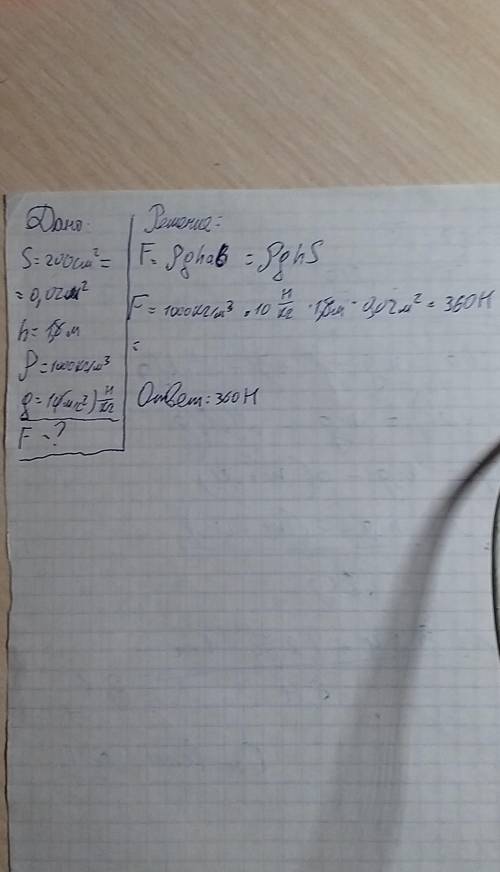 Дано:
S = 200 см² =
= 0,02 м²
h = 1,8 м
ρ = 1000 кг/м³
g = 10 Н/кг
F = ?
Решение:
F = ρghab = ρghS
F = 1000 кг/м³ · 10 Н/кг · 1,8 м · 0,02 м² = 360 Н
=
Ответ: 360 Н